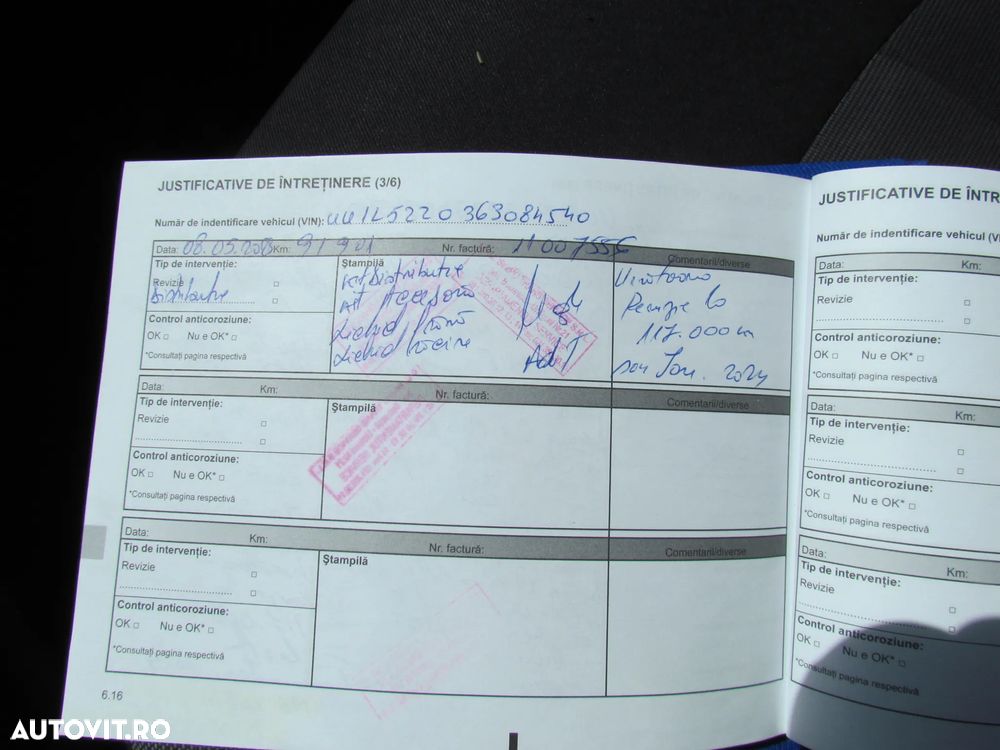 JUSTIFICATIVE DE ÎNTREȚINERE (3/6)
Număr de indentificare vehicul (VIN): UU1L5220363084540
Data: 08.05.2023 Km: 91901 Nr. factură: 11007556 Comentarii/diverse
Tip de intervenție:
Revizie
Distributie
Control anticoroziune:
OK Nu e OK*
*Consultați pagina respectivă
Ștampilă
Kit Distributie
Kit Accesorii
Lichid frână
Lichid răcire
Urmatoarea
Revizie la
117.000 km
sau Ian. 2024
Data: Km: Nr. factură: Comentarii/diverse
Tip de intervenție:
Revizie
Control anticoroziune:
OK Nu e OK*
*Consultați pagina respectivă
Ștampilă
Data: Km: Nr. factură: Comentarii/diverse
Tip de intervenție:
Revizie
Control anticoroziune:
OK Nu e OK*
*Consultați pagina respectivă
Ștampilă
6.16
JUSTIFICATIVE DE ÎNTR
Număr de indentificare vehicul (VI
Data: Km:
Tip de intervenție:
Revizie
Control anticoroziune:
OK Nu e OK*
*Consultați pagina respectivă
Data: Km:
Tip de intervenție:
Revizie
Control anticoroziune:
OK Nu e OK*
*Consultați pagina respectivă
Data: Km:
Tip de intervenție:
Revizie
Control anticoroziune:
OK Nu e OK*
*Consultați pagina respectivă
AUTOVIT.RO